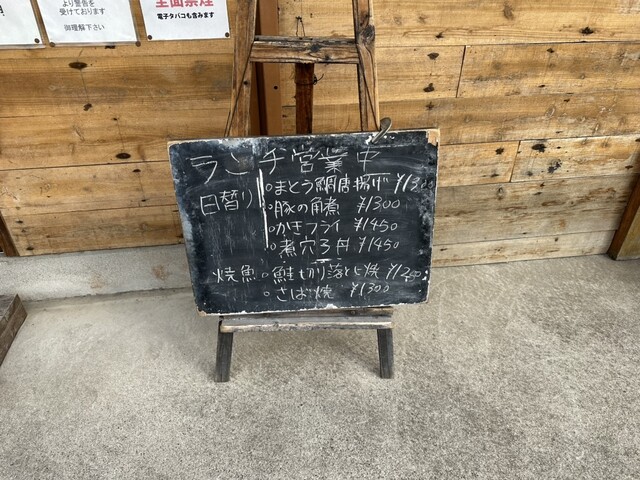 より警告を
受けております
御理解下さい
全面禁煙
電子タバコも含みます
ランチ営業中
日替り
・まとう鯛唐揚げ ¥1300
・豚の角煮 ¥1300
・かきフライ ¥1450
・煮穴子丼 ¥1450
焼魚 ・鮭切り落とし焼 ¥1200
・さば焼 ¥1300